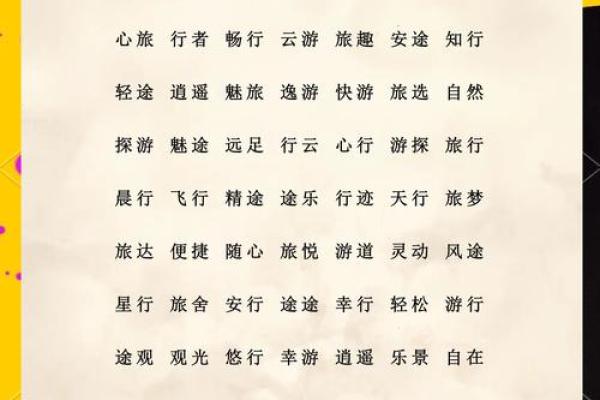 心旅 行者 畅行 云游 旅趣 安途 知行
轻途 逍遥 魅旅 逸游 快游 旅选 自然
探游 魅途 远足 行云 心行 游探 旅行
晨行 飞行 精途 途乐 行迹 天行 旅梦
旅达 便捷 随心 旅悦 游道 灵动 风途
星行 旅舍 安行 途途 幸行 轻松 游行
途观 观光 悠行 幸游 逍遥 乐景 自在